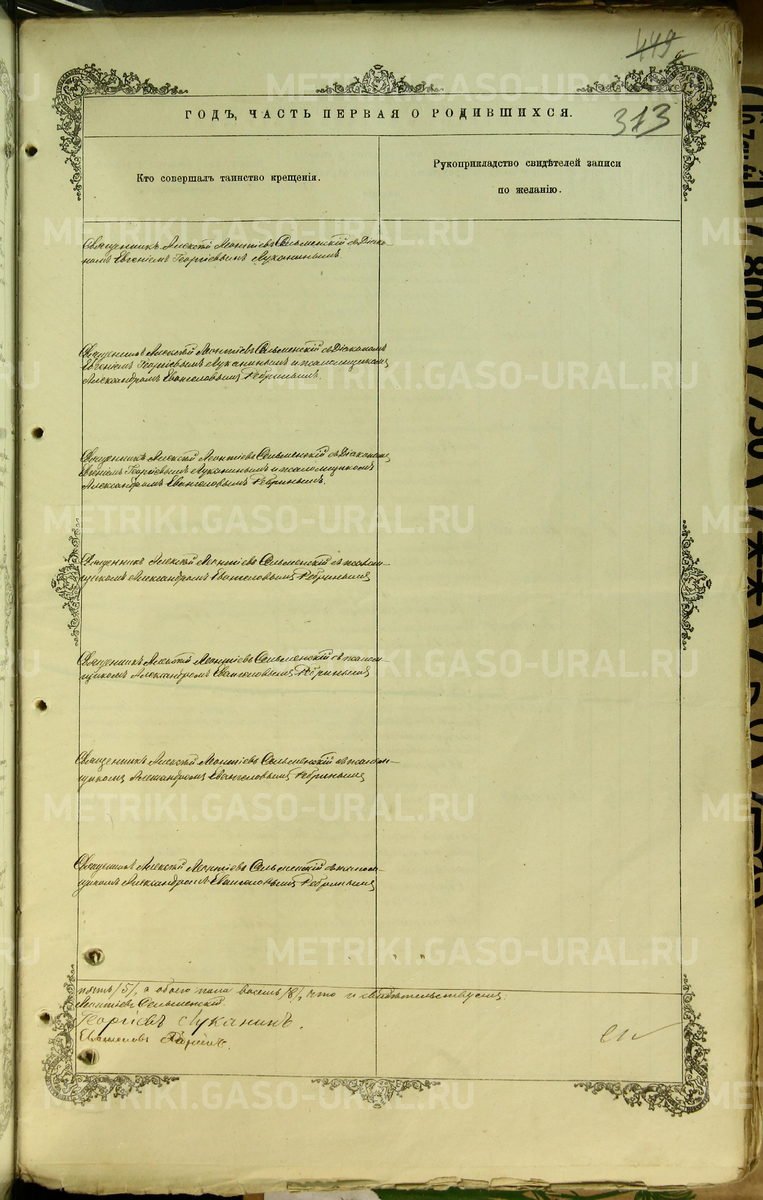 449
313
ГОДЪ, ЧАСТЬ ПЕРВАЯ О РОДИВШИХСЯ.
Кто совершалъ таинство крещенія.
Рукоприкладство свидѣтелей записи
по желанію.
Священникъ Алексѣй Леонтіевъ Сельменскій съ Діако-
номъ Евгеніемъ Георгіевымъ Луканинымъ
Священникъ Алексѣй Леонтіевъ Сельменскій съ Діакономъ
Евгеніемъ Георгіевымъ Луканинымъ и псаломщикомъ
Александромъ Евангеловымъ Ребринымъ.
Священникъ Алексѣй Леонтіевъ Сельменскій съ Діакономъ
Евгеніемъ Георгіевымъ Луканинымъ и псаломщикомъ
Александромъ Евангеловымъ Ребринымъ.
Священникъ Алексѣй Леонтіевъ Сельменскій съ псалом-
щикомъ Александромъ Евангеловымъ Ребринымъ
Священникъ Алексѣй Леонтіевъ Сельменскій съ псалом-
щикомъ Александромъ Евангеловымъ Ребринымъ
Священникъ Алексѣй Леонтіевъ Сельменскій съ псалом-
щикомъ Александромъ Евангеловымъ Ребринымъ
Священникъ Алексѣй Леонтіевъ Сельменскій съ псалом-
щикомъ Александромъ Евангеловымъ Ребринымъ
пять /5/, а обоего пола восемь /8/, что и свидѣтельствуемъ
Леонтіевъ Сельменскій.
Георгіевъ Луканинъ.
Евангеловъ
METRIKI.GASO-URAL.RU